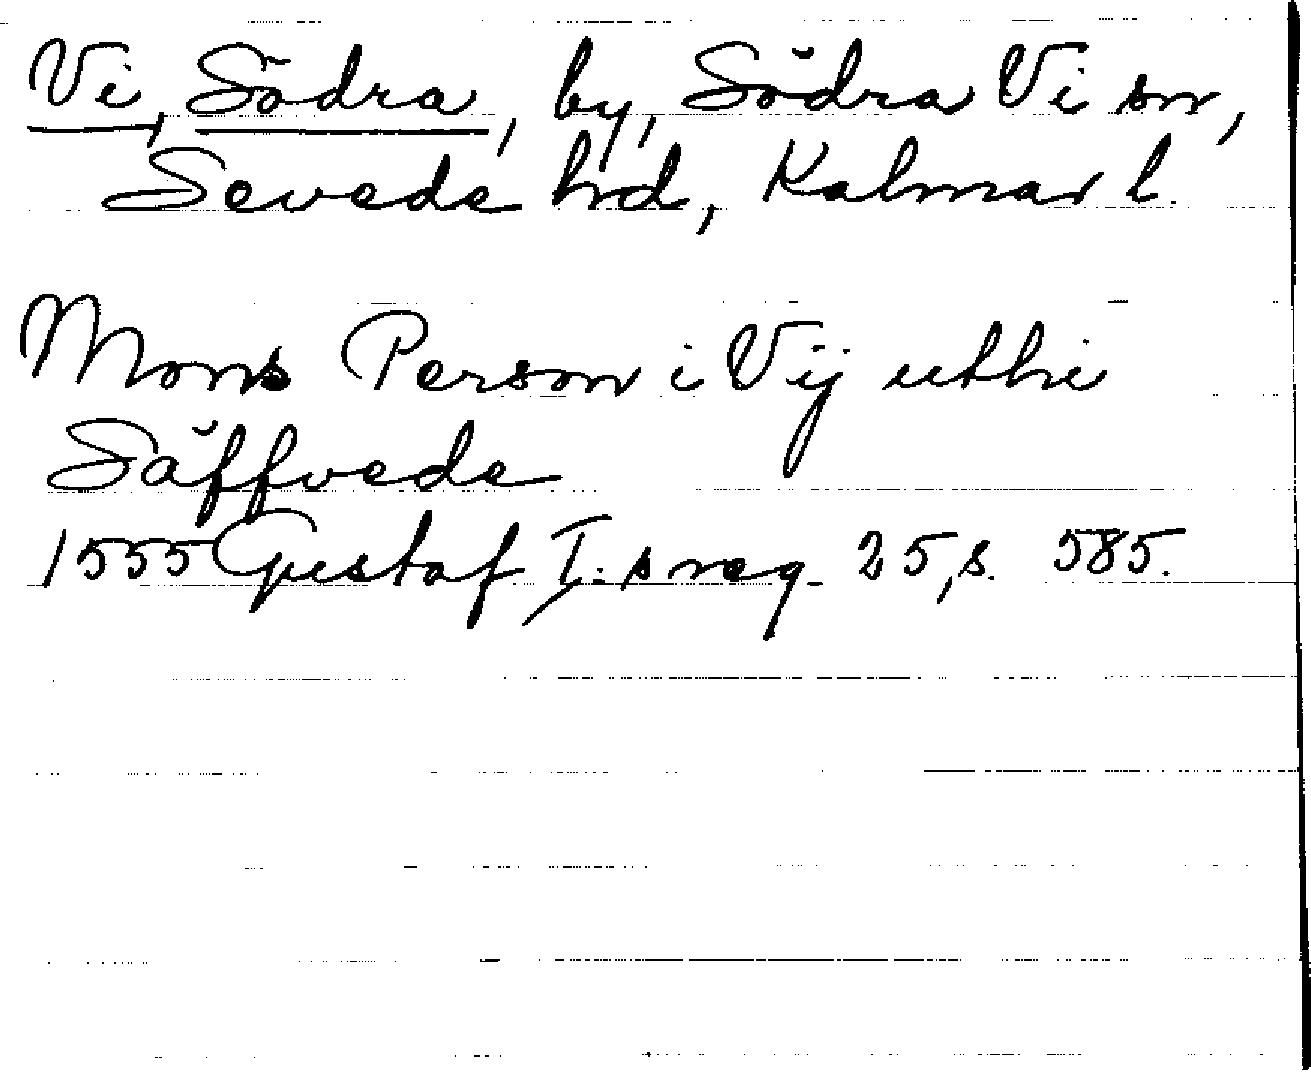 Vi, Södra, by, Södra Vi sn,
Sevede hd, Kalmar l.
Mons Person i Vij utthi
Säffvede
1555 Gustaf I:s reg. 25, s. 585.